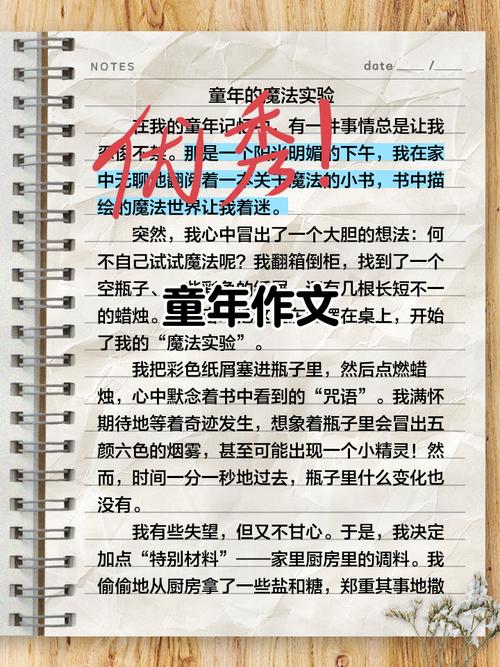 NOTES
date / 
童年的魔法实验
在我的童年记忆中,有一件事情总是让我
忍俊不禁。那是一个阳光明媚的下午,我在家
中无聊地翻阅着一本关于魔法的小书,书中描
绘的魔法世界让我着迷。
优秀!
突然,我心中冒出了一个大胆的想法:何
不自己试试魔法呢?我翻箱倒柜,找到了一个
空瓶子、一些彩色的纸屑,有几根长短不一
的蜡烛。在桌上,开始
童年作文
了我的“魔法实验”。
我把彩色纸屑塞进瓶子里,然后点燃蜡
烛,心中默念着书中看到的“咒语”。我满怀
期待地等着奇迹发生,想象着瓶子里会冒出五
颜六色的烟雾,甚至可能出现一个小精灵!然
而,时间一分一秒地过去,瓶子里什么变化也
没有。
我有些失望,但又不甘心。于是,我决定
加点“特别材料”——家里厨房里的调料。我
偷偷地从厨房拿了一些盐和糖,郑重其事地撒